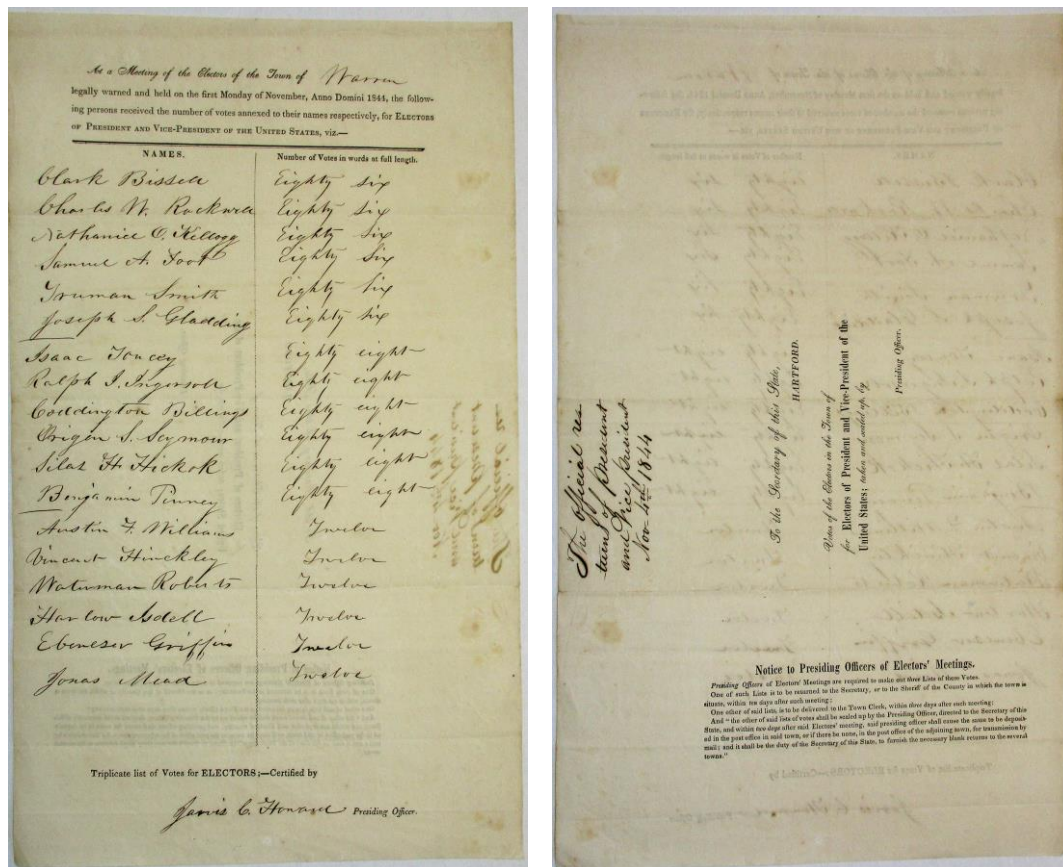 At a Meeting of the Electors of the Town of Warren
legally warned and held on the first Monday of November, Anno Domini 1844, the follow-
ing persons received the number of votes annexed to their names respectively, for ELECTORS
OF PRESIDENT AND VICE-PRESIDENT OF THE UNITED STATES, viz.—
NAMES. Number of Votes in words at full length.
Clark Bissell Eighty six
Charles W. Rockwell Eighty six
Nathaniel O. Kellogg Eighty six
Samuel A. Foot Eighty six
Truman Smith Eighty six
Joseph S. Gladding Eighty six
Isaac Toucey Eighty eight
Ralph I. Ingersoll Eighty eight
Coddington Billings Eighty eight
Origen S. Seymour Eighty eight
Silas H. Hickok Eighty eight
Benjamin Pinney Eighty eight
Austin F. Williams Twelve
Vincent Hinckley Twelve
Waterman Roberts Twelve
Harlow Isbell Twelve
Ebenezer Griffin Twelve
Jonas Mead Twelve
Triplicate list of Votes for ELECTORS;—Certified by
Jarvis C. Howard Presiding Officer.
The official res
turn of president
and Vice president
Nov. 4th 1844
To the Secretary of this State,
HARTFORD.
Votes of the Electors in the Town of
for Electors of President and Vice-President of the
United States; taken and sealed up, by
Presiding Officer.
Notice to Presiding Officers of Electors' Meetings.
Presiding Officers of Electors' Meetings are required to make out three Lists of these Votes.
One of such Lists is to be returned to the Secretary, or to the Sheriff of the County in which the town is
situate, within ten days after such meeting:
One other of said lists, is to be delivered to the Town Clerk, within three days after such meeting:
And "the other of said lists of votes shall be sealed up by the Presiding Officer, directed to the Secretary of this
State, and within two days after said Electors' meeting, said presiding officer shall cause the same to be deposit-
ed in the post office in said town, or if there be none, in the post office of the adjoining town, for transmission by
mail; and it shall be the duty of the Secretary of this State, to furnish the necessary blank returns to the several
towns."